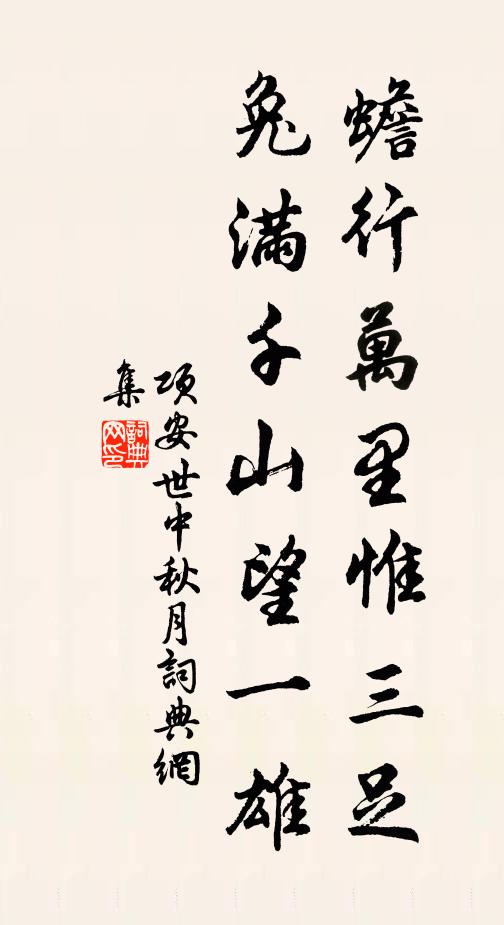 蟾行萬里惟三足
兔滿千山望一雄
項安世中秋月詞典網
集
詞典
网印